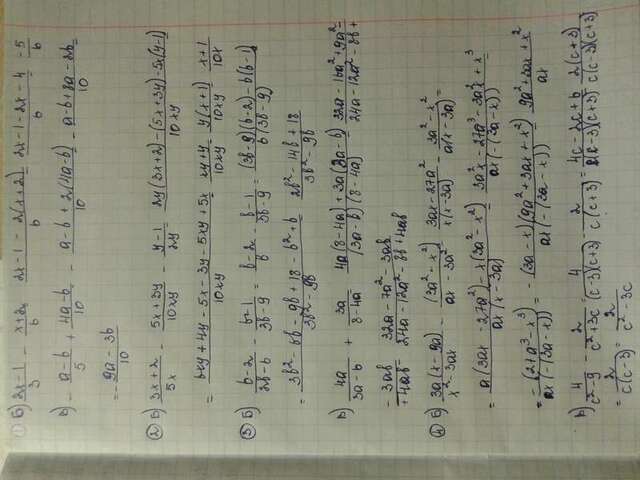 ① б) (2x-1)/3 - (x+2)/6 = (2x-1-2(x+2))/6 = (2x-1-2x-4)/6 = -5/6
в) -(a-b)/5 + (4a-b)/10 = (-a-b+2(4a-b))/10 = (-a-b+8a-2b)/10
= (-9a-3b)/10
② б) (3x+2)/5x - (5x+3y)/10xy - (y-1)/2y = (2y(3x+2)-(5x+3y)-5x(y-1))/10xy
= (6xy+4y-5x-3y-5xy+5x)/10xy = (xy+y)/10xy = y(x+1)/10xy = (x+1)/10x
③ б) (b-2)/(3b-9) - (b-1)/(3b-9) = (b-2)/b - (b-1)/(3b-9) = ((3b-9)(b-2)-b(b-1))/(b(3b-9))
= (3b²-6b-9b+18-b²+b)/(3b²-9b) = (2b²-14b+18)/(3b²-9b)
в) 4a/(3a-b) + 3a/(8-4a) = (4a(8-4a)+3a(3a-b))/((3a-b)(8-4a)) = (32a-16a²+9a²-
-3ab)/(+4ab) = (32a-7a²-3ab)/(24a-12a²-8b+4ab)
④ б) 3a(x-9a)/(x²-3ax) - (3a²-x²)/(ax-3a²) = (3ax-27a²)/(x(x-3a)) - (3a²-x²)/(a(x-3a))
= (a(3ax-27a²)-x(3a²-x²))/(ax(x-3a)) = (3a²x-27a³-3a²x+x³)/(ax(-(3a-x)))
= -(27a³-x³)/(ax(-(3a-x))) = -(3a-x)(9a²+3ax+x²)/(ax(-(3a-x))) = (9a²+3ax+x²)/ax
в) 4/(c²-9) - 2/(c²+3c) = 4/((c-3)(c+3)) - 2/(c(c+3)) = (4c-2c+6)/(c(c-3)(c+3)) = 2(c+3)/(c(c-3)(c+3))
= 2/(c(c-3)) = 2/(c²-3c)